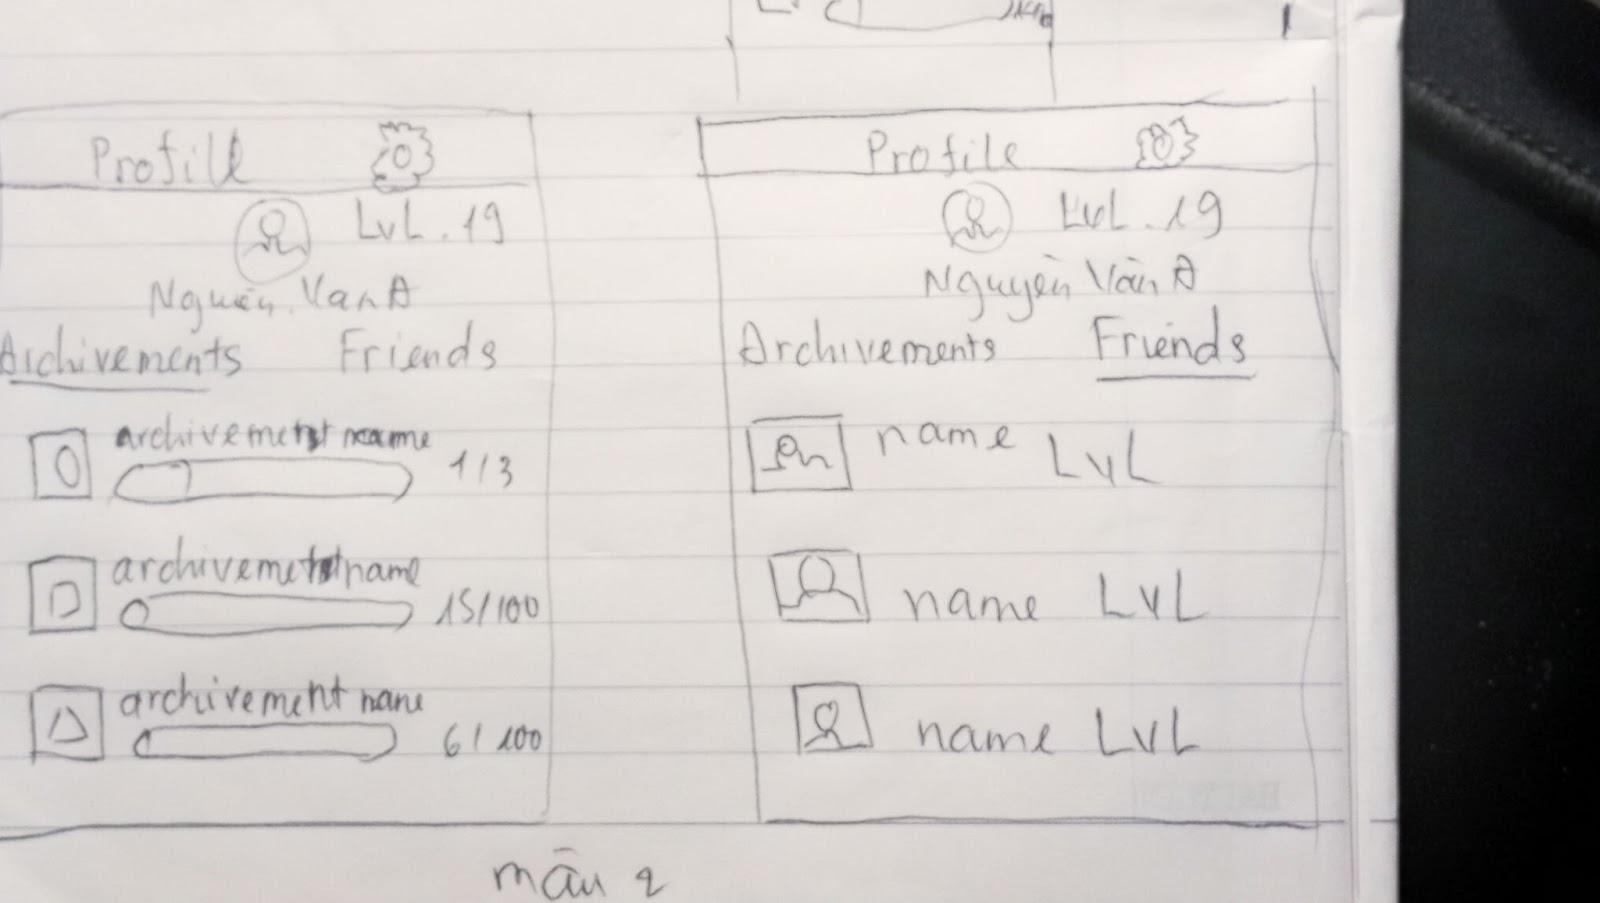 Profile
LvL.19
Nguễn.VanA
Archivements Friends
archivement name
1/3
archivement name
15/100
archivement name
6/100
Profile
LvL.19
Nguyễn Văn A
Archivements Friends
name LvL
name LvL
name LvL
mẫu 2